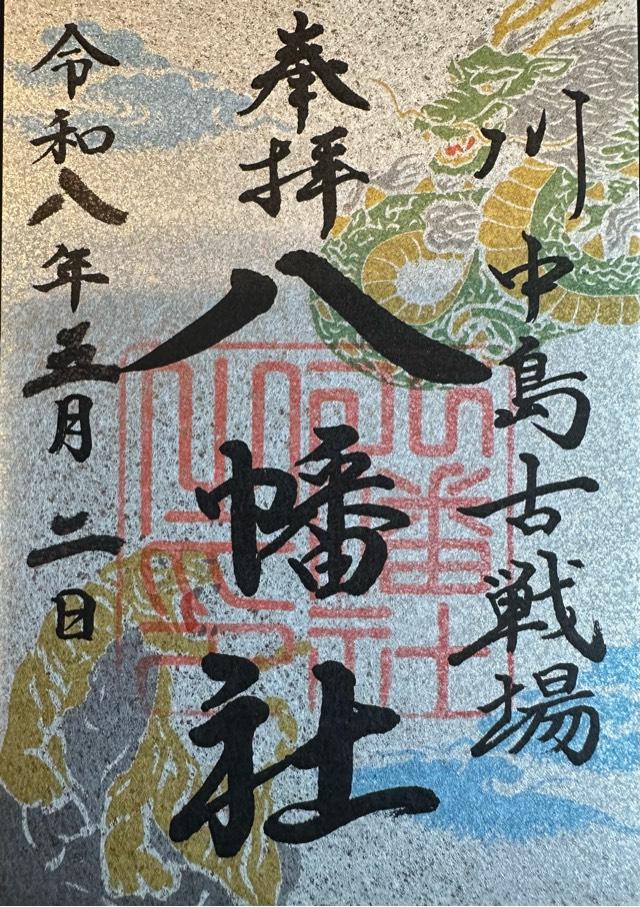 川中島古戦場
奉拝
八幡社
令和八年五月二日